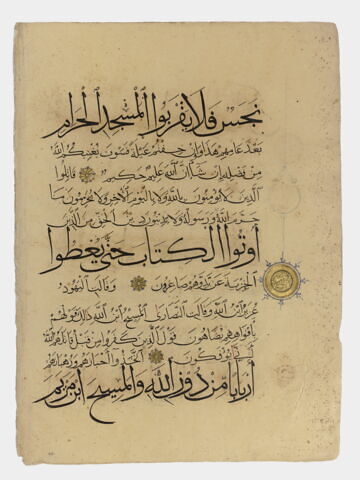 نجس فلا يقربوا المسجد الحرام
بعد عامهم هذا وإن خفتم عيلة فسوف يغنيكم الله
من فضله إن شاء الله عليم حكيم قاتلوا
الذين لا يؤمنون بالله ولا باليوم الآخر ولا يحرمون ما
حرم الله ورسوله ولا يدينون دين الحق من الذين
أوتوا الكتاب حتى يعطوا
الجزية عن يد وهم صاغرون وقالت اليهود
عزير ابن الله وقالت النصارى المسيح ابن الله ذلك قولهم
بأفواههم يضاهون قول الذين كفروا من قبل قاتلهم الله
أنى يؤفكون اتخذوا أحبارهم ورهبانهم
أربابا من دون الله والمسيح ابن مريم